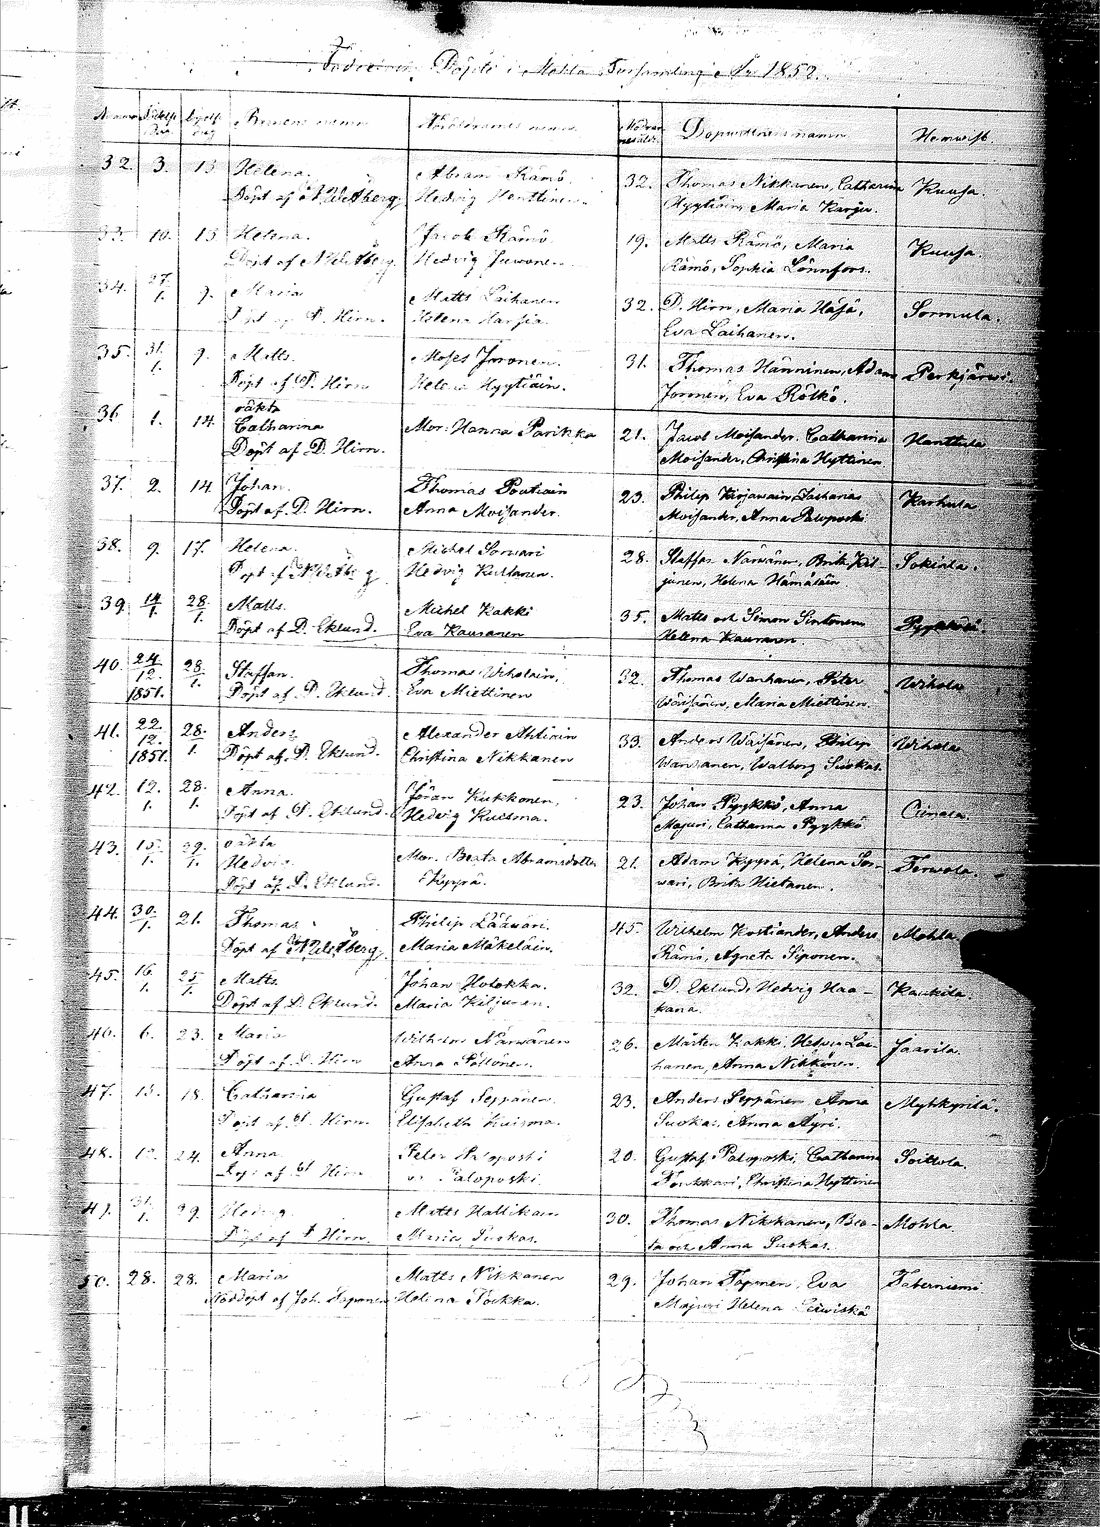 Födde och Döpte i Mohla Församling År 1852.
Barnens namn
Föräldrarnes namn
Dopvittnens namn
Hemvist.
32. 3. 13 Helena. Abram Rämö. 32. Thomas Nikkanen, Catharina Kuusa.
Döpt af Hedvig Henttinen Hyytiäin, Maria Karju.
33. 10. 13 Helena. Jacob Rämö 19. Matts Rämö, Maria Kuusa.
Döpt af Hedvig Juvonen Rämö, Sophia Lönnfors.
34. 27/1. 9. Maria Matts Laihanen 32. D. Hirn, Maria Häfä, Sormula.
Döpt af D. Hirn. Helena Harjia. Eva Laihanen.
35. 31/1. 9. Matts. Moses Joronen. 31. Thomas Hänninen, Adam Perkjärvi.
Döpt af D. Hirn Helena Hyytiäin. Joronen, Eva Rötkö.
oäkta
36 1. 14. Catharina Mor. Hanna Parikka 21. Jacob Moisander. Catharina Hanttula
Döpt af D. Hirn. Moisander, Christina Hyttinen
37. 2. 14. Johan. Thomas Poutiain 23. Philip Karhula
Döpt af D. Hirn. Anna Moisander. Moisander, Anna Paloposki
38. 9. 17. Helena. Michel Sorvari 28. Staffan Närvänen, Brita Kil- Sokiala.
Döpt af Hedvig junen, Helena Hämäläin
39. 14/1. 28/1. Matts. Michel Kakki 35. Matts och Simon Sintonen
Döpt af D. Eklund. Eva Kauranen Helena Kauranen
40. 24/12. 1851. 28/1. Staffan. Thomas Wiholain, 32. Thomas Wanhanen, Peter Wihola
Döpt af D. Eklund. Eva Miettinen Wäisänen, Maria Miettinen.
41. 22/12. 1851. 28/1. Anders Alexander Ahtiain 33. Anders Wäisänen, Philip Wihola
Döpt af D. Eklund. Christina Nikkanen Wanhanen, Walborg Suokas.
42. 12/1. 28/1. Anna. Jöran Kukkonen, 23. Johan Pyykkö, Anna
Döpt af D. Eklund. Hedvig Kuisma. Majuri, Catharina Pyykkö
oäkta
43. 15/1. 29/1. Hedvig. Mor. Beata Abramsdotter 21. Adam Kyyrä, Helena Sor- Terwola.
Döpt af D. Eklund. Kyyrä. wari, Brita Hietanen.
44. 30/1. 21. Thomas Philip Lääväri. 45. Wilhelm Anders Mohla
Döpt af Maria Mäkeläin. Rämö, Agneta Siponen.
45. 16/1. 25/1. Matts. Johan Holokka. 32. D. Eklund, Hedvig Haa- Kaukila.
Döpt af D. Eklund. Maria Kiljunen. kana.
46. 6. 23. Maria Wilhelm Närvänen 26. Mårten Kakki, Lai- Jaarila.
Döpt af D. Hirn Anna Pöllönen. hanen, Anna Nikkonen.
47. 15. 18. Catharina Gustaf Seppänen 23. Anders Seppänen Anna Mytkyrilä.
Döpt af D. Hirn. Elisabeth Kuisma. Suokas, Anna Äyri.
48. 24. Anna. Peter Paloposki 20. Gustaf Paloposki, Catharina Soittola
Döpt af D. Hirn Paloposki. Christina Hyttinen
49. 31/1. 29. Hedvig Matts Hallikain 30. Thomas Nikkanen, Bea- Mohla
Döpt af D. Hirn. Maria Suokas. ta och Anna Suokas.
50. 28. 28. Maria Matts Nikkanen 29. Johan Toponen, Eva Taberniemi
Nöddöpt af Joh. Toponen Helena Pokka. Majuri Helena